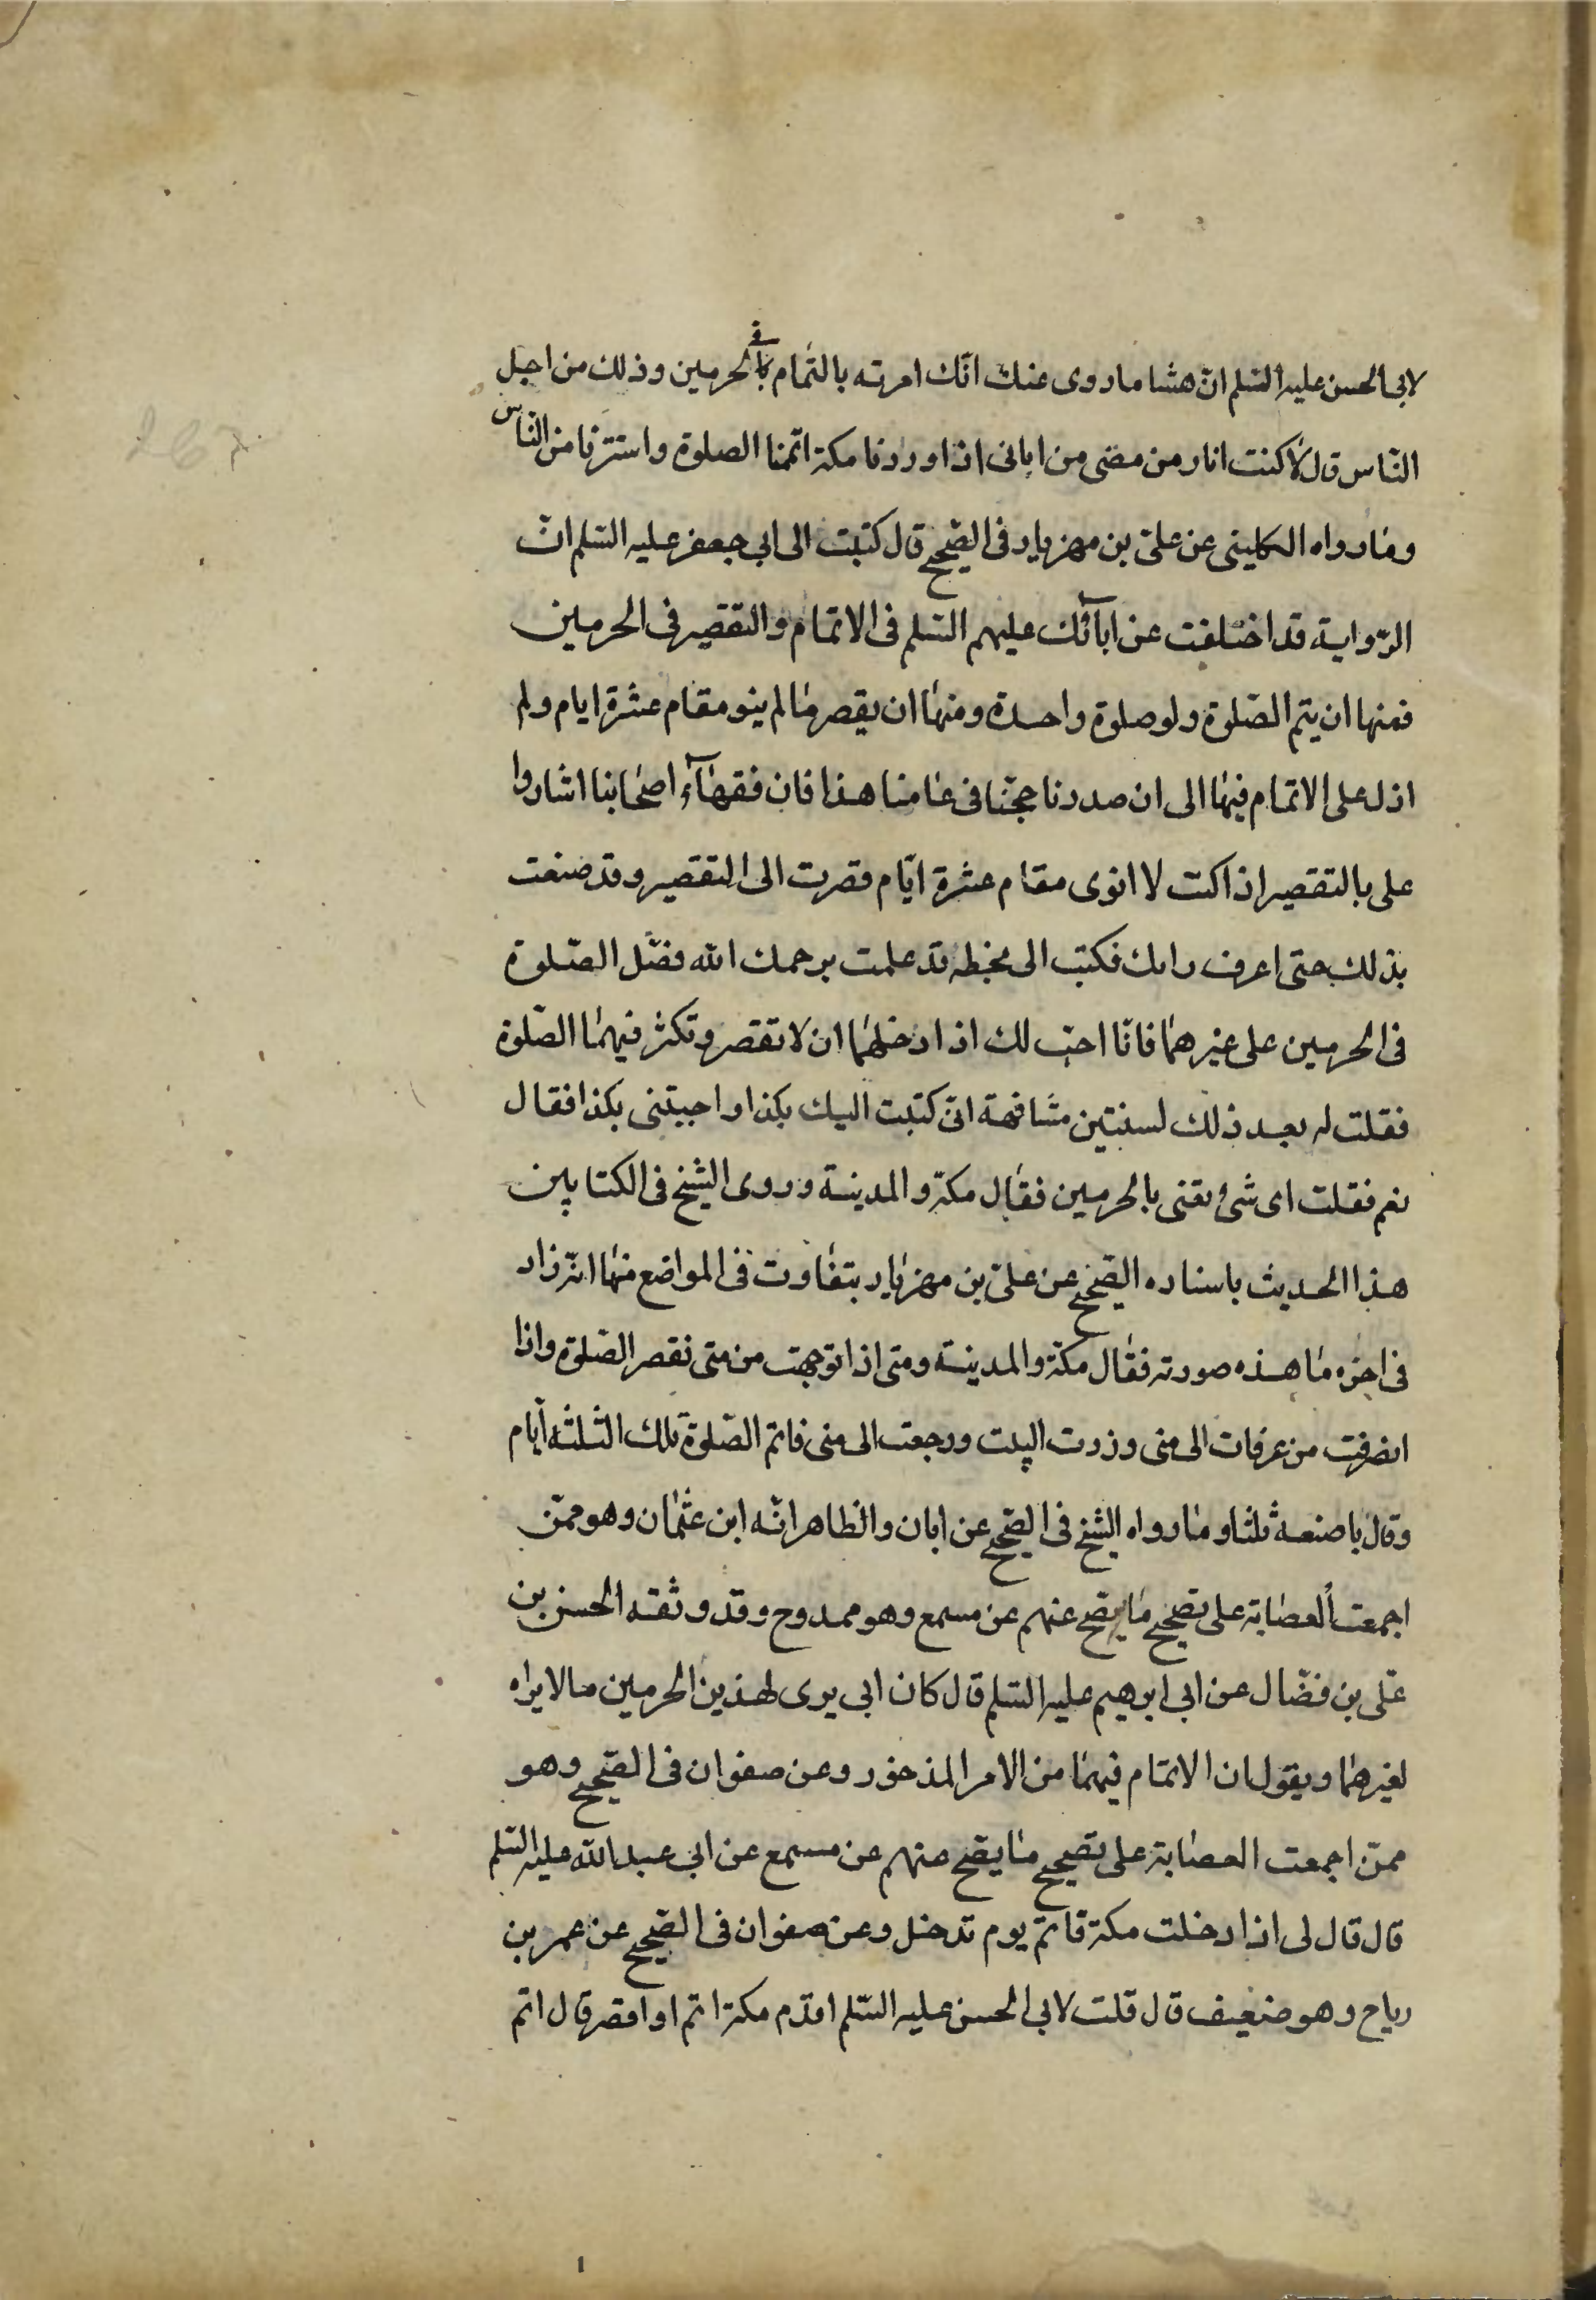 لابى الحسن عليه السّلم انّ هشاما روى عنك انّك امرته بالتّمام فى الحرمين وذلك من اجل
النّاس قال لا كنت انا ومن مضى من ابائى اذا وردنا مكة اتممنا الصلوة واستترنا من النّاس
وما رواه الكلينى عن علىّ بن مهزيار فى الصّحيح قال كتبت الى ابى جعفر عليه السّلم انّ
الرّواية قد اختلفت عن ابآئك عليهم السّلم فى الاتمام والتقصير فى الحرمين
فمنها ان يتم الصّلوة ولو صلوة واحدة ومنها ان يقصر ما لم ينو مقام عشرة ايام ولم
ازل على الاتمام فيها الى ان صدرنا حجّنا فى عامنا هذا فان فقهآء اصحابنا اشاروا
على بالتقصير اذا كنت لا انوى مقام عشرة ايّام فصرت الى التقصير وقد ضعت
بذلك حتى اعرف رايك فكتب الى بخطه قد علمت يرحمك الله فضّل الصّلوة
فى الحرمين على غيرهما فانّا احبّ لك اذا دخلهما ان لا تقصر وتكثر فيهما الصّلوة
فقلت له بعد ذلك لسنتين مشافهة انّى كتبت اليك بكذا واجبتنى بكذا فقال
نعم فقلت اى شىء تعنى بالحرمين فقال مكّة والمدينة وروى الشيخ فى الكتابين
هذا الحديث باسناده الصّحيح عن علىّ بن مهزيار بتفاوت فى المواضع منها انّه زاد
فى اخره ما هذه صورته فقال مكّة والمدينة ومتى اذا توجهت من متى نقصر الصّلوة واذا
انصرفت من عرفات الى منى وزرت البيت ورجعت الى منى فاتم الصّلوة تلك الثلثه ايّام
وقال باصنعه ثلثا وما رواه الشيخ فى الصّحيح عن ابان والظاهر انّه ابن عثمان وهو ممّن
اجمعت العصابة على تصحيح ما يصح عنهم عن مسمع وهو ممدوح وقد وثقه الحسن بن
علىّ بن فضّال عن ابى ابرهيم عليه السّلم قال كان ابى يرى لهذين الحرمين ما لا يراه
لغيرهما ويقول ان الاتمام فيهما من الامر المذخور وعن صفوان فى الصّحيح وهو
ممّن اجمعت العصابة على تصحيح ما يصّح عنهم عن مسمع عن ابى عبد الله عليه السّلم
قال قال لى اذا دخلت مكة فاتمّ يوم تدخل وعن صفوان فى الصّحيح عن عمر بن
رياح وهو ضعيف قال قلت لابى الحسن عليه السّلم اقدم مكة اتم او اقصر قال اتم